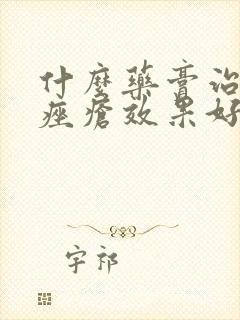 什麼藥膏治
痤瘡效果好
宇祁